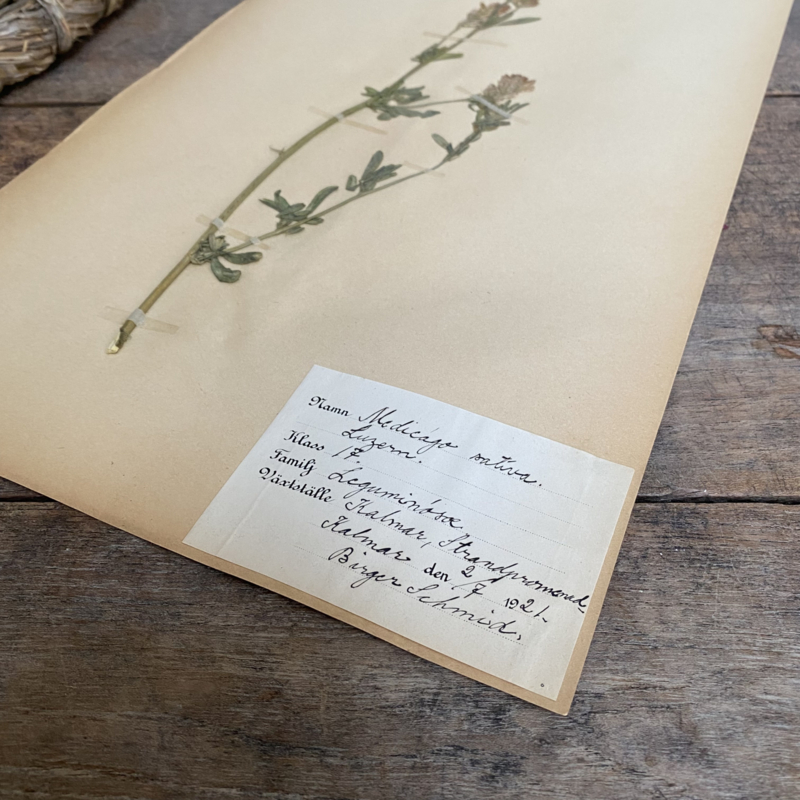 Namn Medicágo sativa.
Luzern.
Klass 17.
Familj Leguminósæ
Växtställe Kalmar, Strandpromenad.
Kalmar den 2/7 1921.
Birger Schmid.